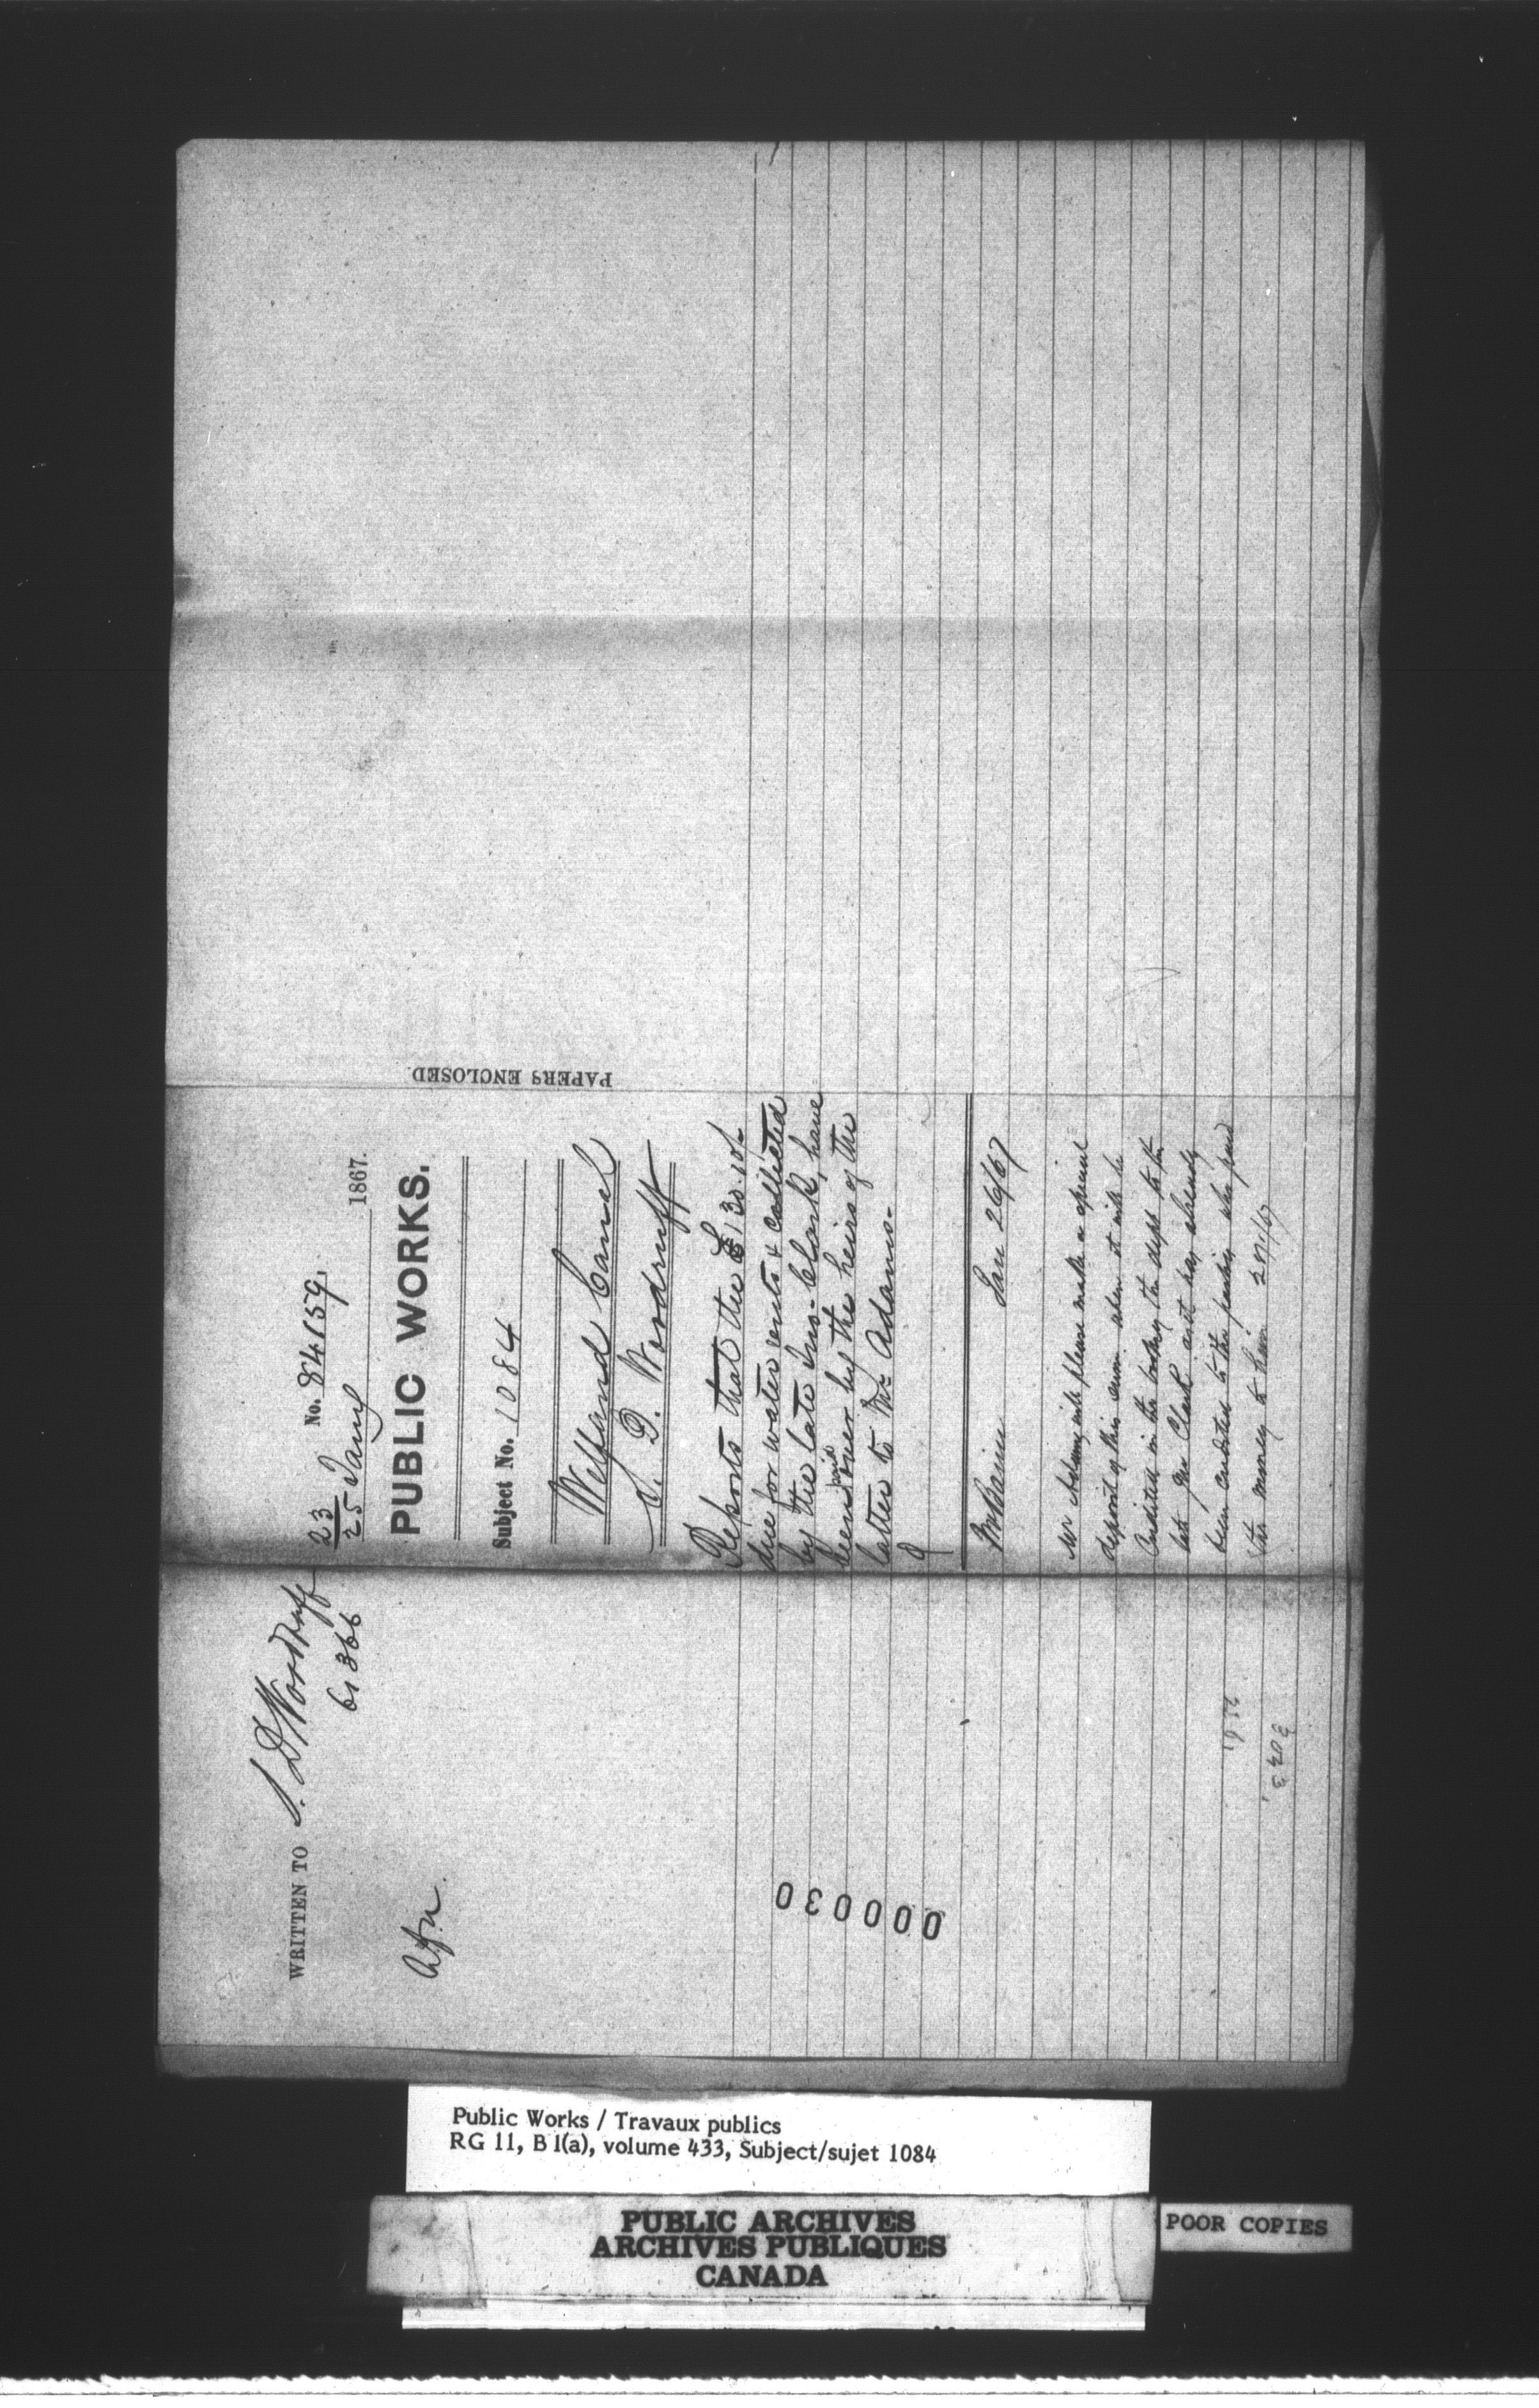 WRITTEN TO S. D Woodruff
61366
23
25 Jany
No. 84159,
1867.
PUBLIC WORKS.
Subject No. 1084
Welland Canal
S. D. Woodruff
Reports that the £130.10/-
due for water rents & collected
by the late Jno. Clark, have
been paid over by the heirs of the
latter to Mr Adams-
Jan 26/67
Mr Adams will please make a special
deposit of this sum when it will be
Credited in the books of the dept to the
late Jno Clark as it has already
been credited to the parties who paid
the money to him 28/1/67
PAPERS ENCLOSED.
000030
3043,
Public Works / Travaux publics
RG 11, B 1(a), volume 433, Subject/sujet 1084
PUBLIC ARCHIVES
ARCHIVES PUBLIQUES
CANADA
POOR COPIES